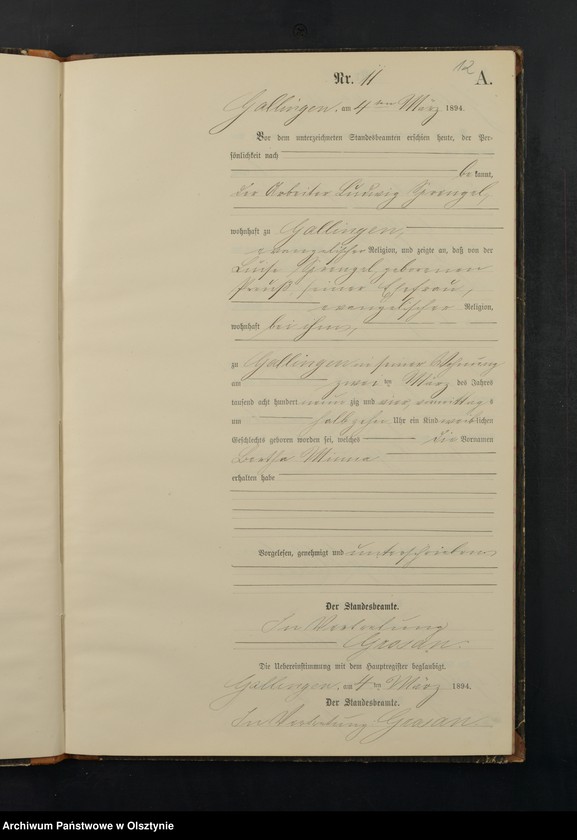 12
Nr. 11 A.
Gallingen, am 4ten März 1894.
Vor dem unterzeichneten Standesbeamten erschien heute, der Per-
sönlichkeit nach
be kannt,
der Arbeiter Ludwig Sprengel,
wohnhaft zu Gallingen,
evangelischer Religion, und zeigte an, daß von der
Luise Sprengel geborenen
Preuß, seiner Ehefrau,
evangelischer Religion,
wohnhaft bei ihm,
zu Gallingen in seiner Wohnung
am zwei ten März des Jahres
tausend acht hundert neun zig und vier, vormittag s
um halb zehn Uhr ein Kind weib lichen
Geschlechts geboren worden sei, welches die Vornamen
Bertha Minna
erhalten habe
Vorgelesen, genehmigt und unterschrieben
Der Standesbeamte.
In Vertretung
Die Uebereinstimmung mit dem Hauptregister beglaubigt.
Gallingen, am 4 ten März 1894.
Der Standesbeamte.
In Vertretung
Archiwum Państwowe w Olsztynie